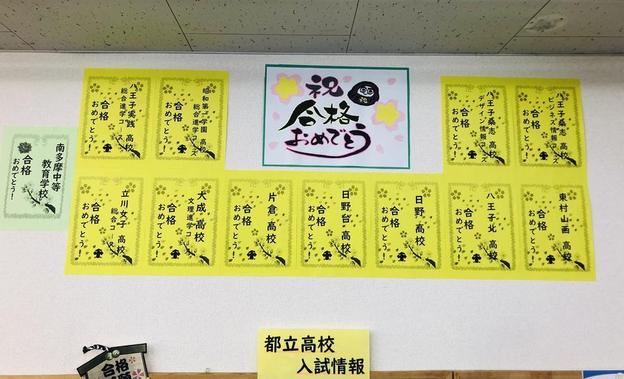 祝
合格
おめでとう
八王子実践 高校
総合進学コース
合格
おめでとう!
昭和第一学園 高校
総合進学コース
合格
おめでとう!
八王子桑志 高校
デザイン情報コース
合格
おめでとう!
八王子桑志 高校
ビジネス情報コース
合格
おめでとう!
南多摩中等
教育学校
合格
おめでとう!
立川女子 高校
総合コ
合格
おめでとう!
大成 高校
文理進学コ
合格
おめでとう!
片倉 高校
合格
おめでとう!
日野台 高校
合格
おめでとう!
日野 高校
合格
おめでとう!
八王子北 高校
合格
おめでとう!
東村山 高校
合格
おめでとう!
都立高校
入試情報
合格